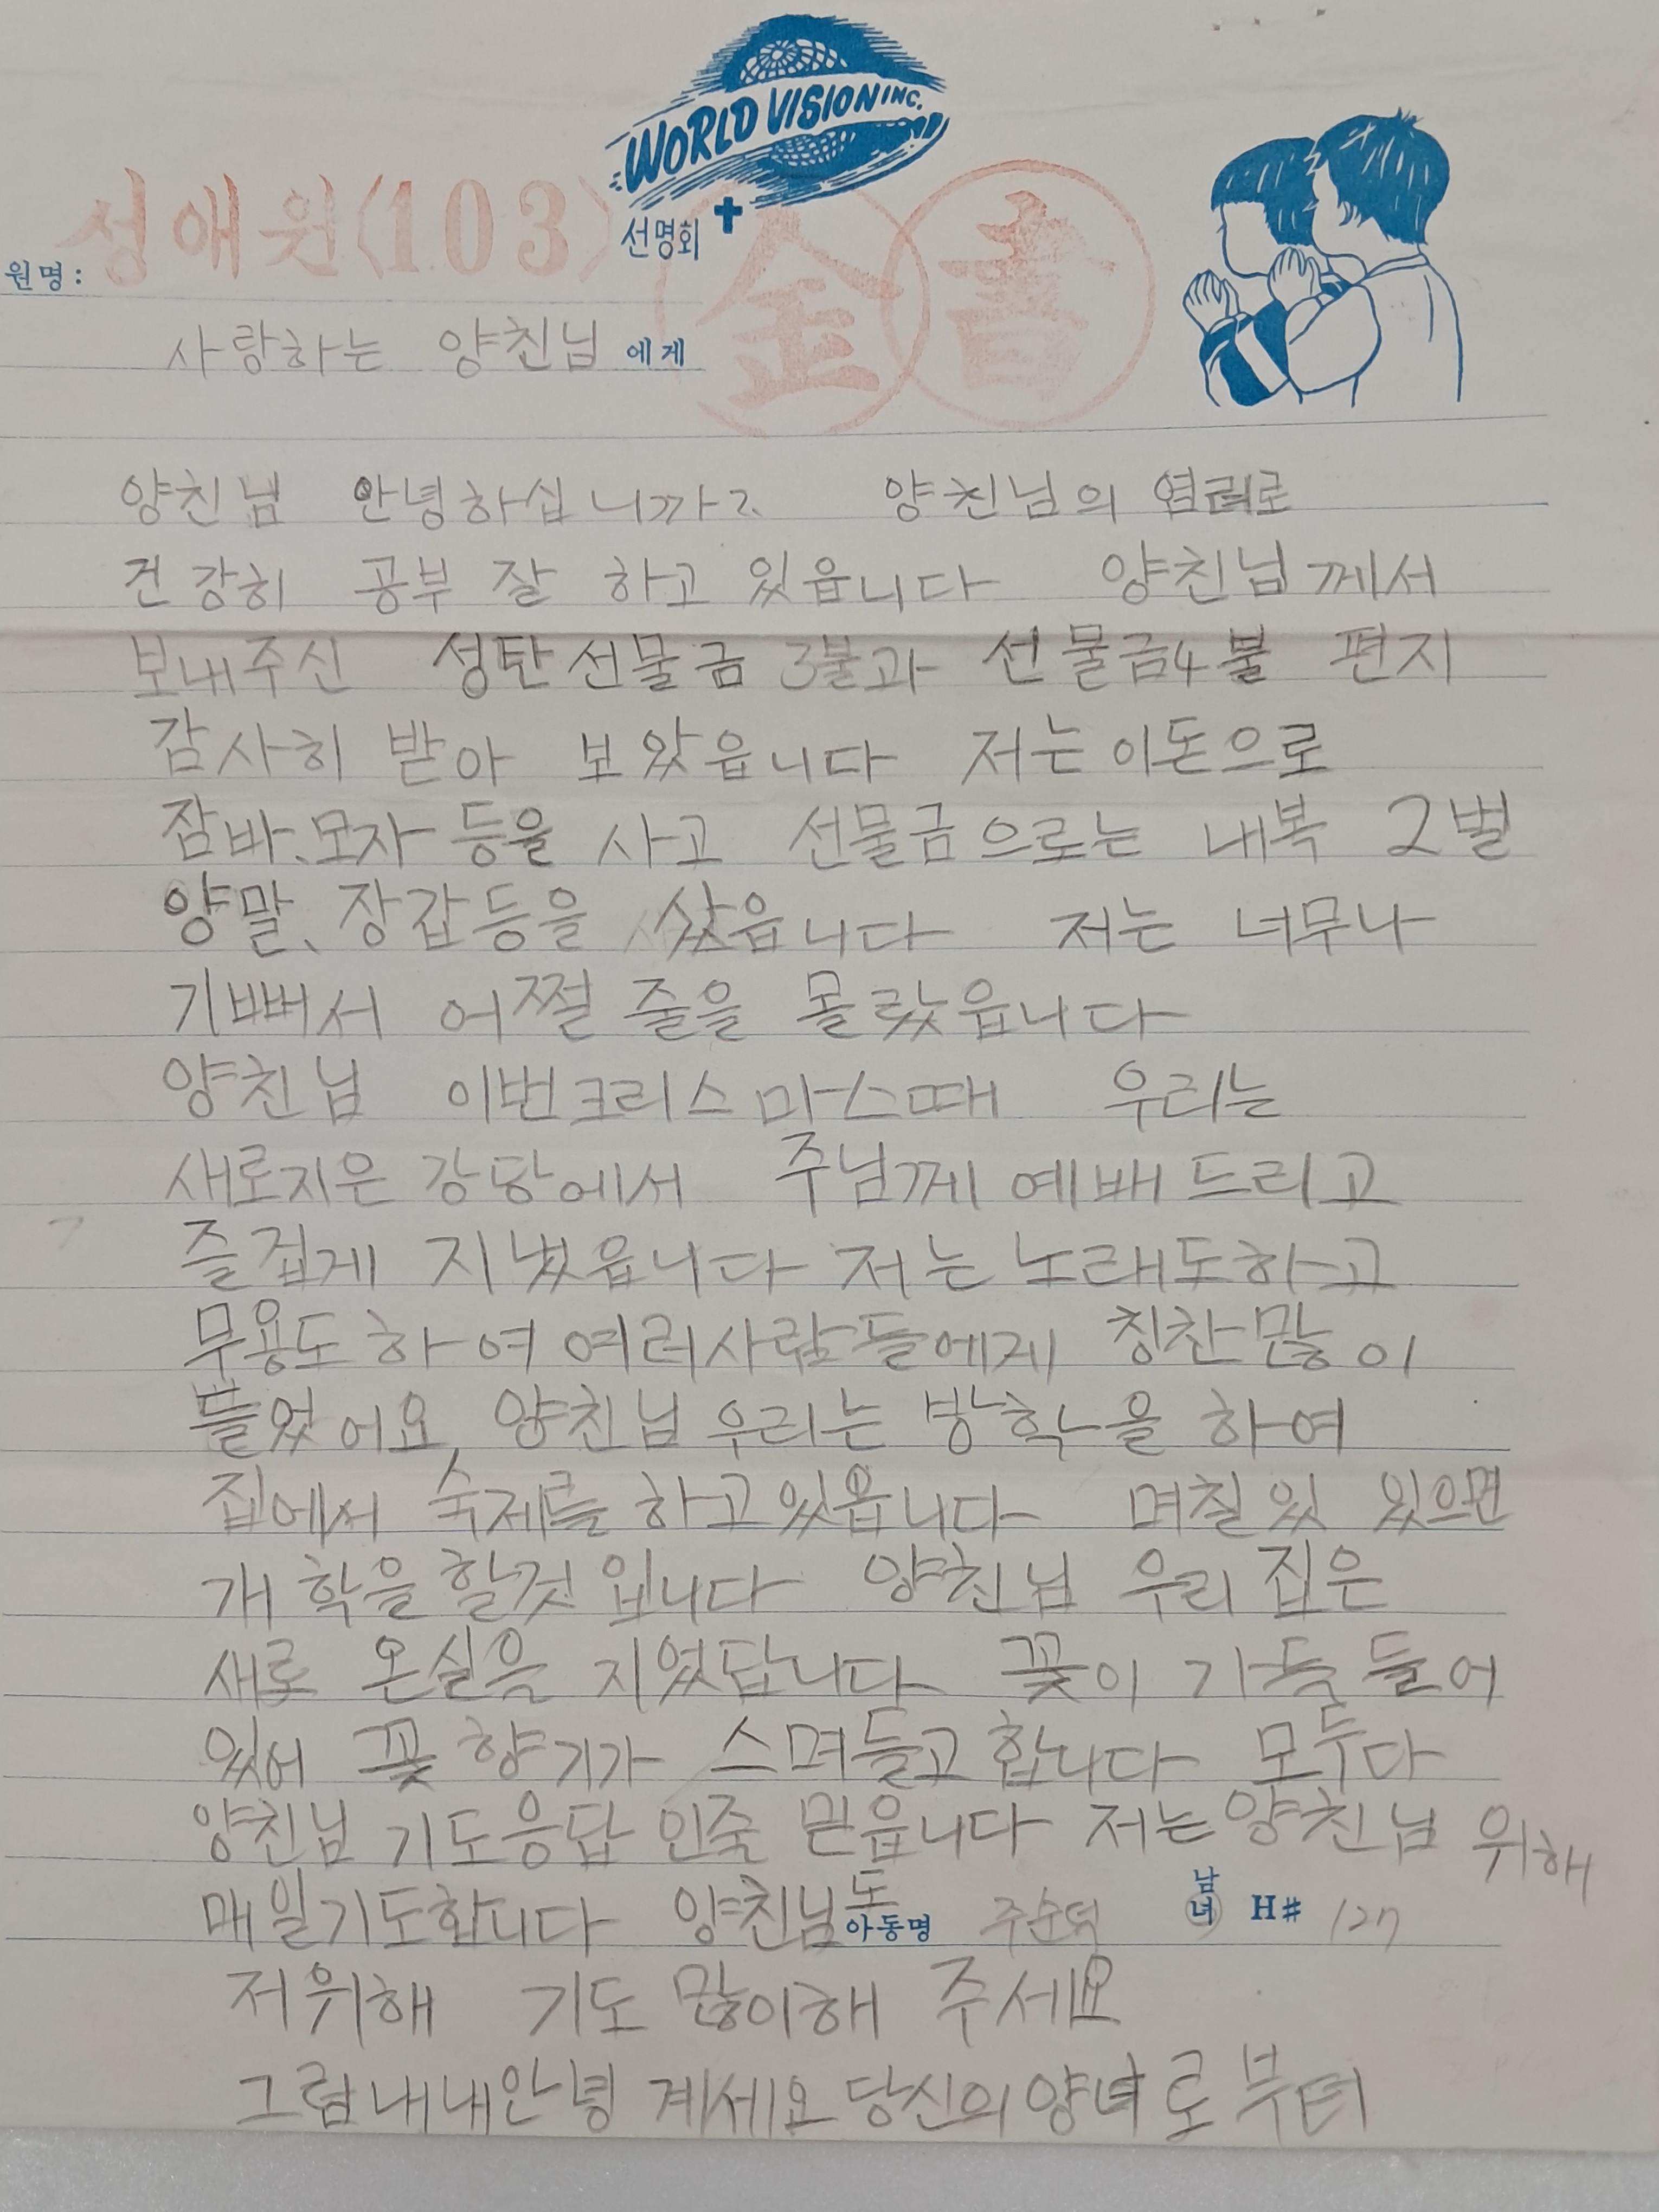 WORLD VISION INC.
선명회
원명: 성애원(103)
金 書
사랑하는 양친님 에게
양친님 안녕하십니까? 양친님의 염려로
건강히 공부 잘 하고 있읍니다 양친님께서
보내주신 성탄선물금 3불과 선물금4불 편지
감사히 받아 보았읍니다 저는 이돈으로
잠바、모자 등을 사고 선물금으로는 내복 2벌
양말、장갑등을 샀읍니다 저는 너무나
기뻐서 어쩔 줄을 몰랐읍니다
양친님 이번크리스마스때 우리는
새로지은 강당에서 주님께 예배드리고
즐겁게 지냈읍니다 저는 노래도하고
무용도 하여 여러사람들에게 칭찬많이
들었어요, 양친님 우리는 방학을 하여
집에서 숙제를 하고있읍니다 며칠있 있으면
개학을 할것 입니다 양친님 우리 집은
새로 온실을 지였답니다 꽃이 가득 들어
있어 꽃 향기가 스며들고합니다 모두다
양친님 기도응답 인줄 믿읍니다 저는 양친님 위해
매일기도합니다 양친님도
아동명 주순덕 남 녀 H# 127
저위해 기도 많이해 주세요
그럼내내안녕 계세요 당신의양녀로부터